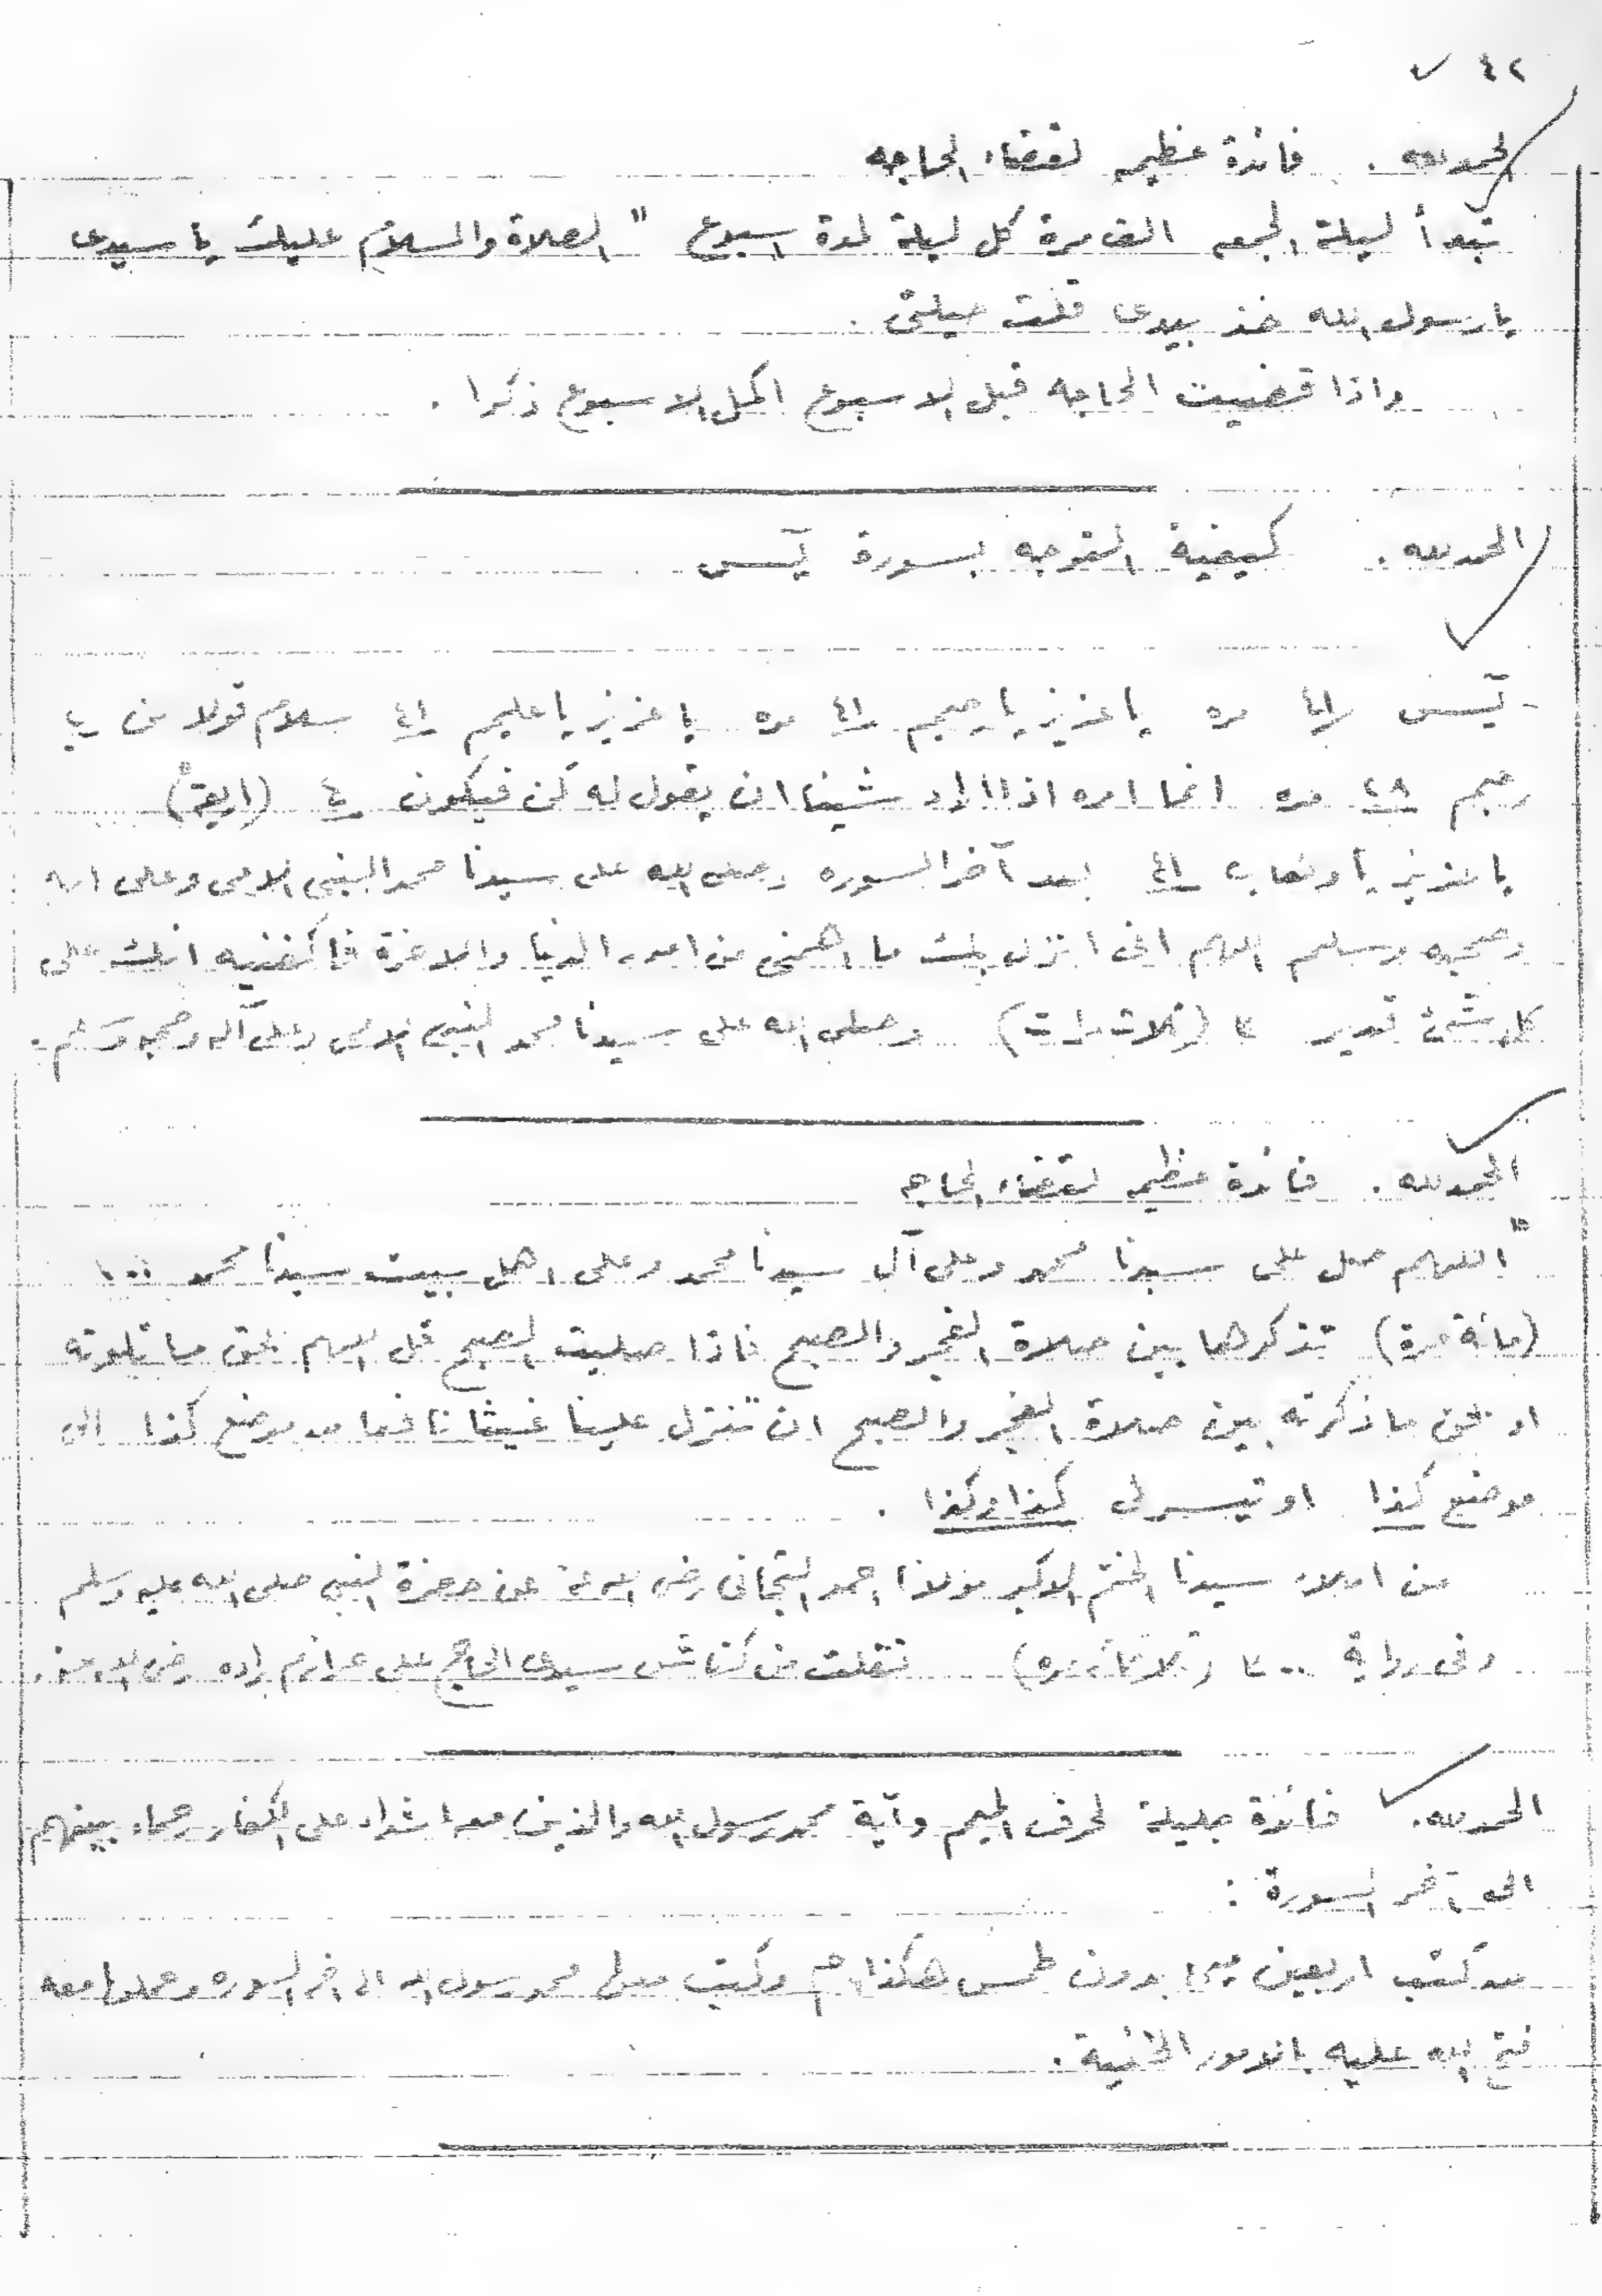 ٤٢
الحمد لله . فائدة عظيمه لقضاء الحاجه
تبدأ ليلة الجمعه الف مرة كل ليلة لمدة اسبوع " الصلاة والسلام عليك يا سيدى
يا رسول الله خذ بيدى قلت حيلتى .
واذا قضيت الحاجه قبل الاسبوع اكمل الاسبوع ذكرا .
الحمد لله . كيفية التوجه بسورة يس
يس مره يا عزيز يا رحيم مره يا عزيز يا عليم سلام قولا من رب
رحيم مره انما امره اذا اراد شيئا ان يقول له كن فيكون ٤ (اربعة)
يا عزيز يا وهاب بعد آخر السوره وصلى الله على سيدنا محمد النبى الامى وعلى اله
وصحبه وسلم اللهم انى انزل بك ما اهمنى من امور الدنيا والاخرة فاكفنيه انك على
كل شئ قدير ٣ (ثلاث مرات) وصلى الله على سيدنا محمد النبى الامى وعلى آله وصحبه وسلم .
الحمد لله . فائدة عظيمه لقضاء الحاجه
" اللهم صل على سيدنا محمد وعلى آل سيدنا محمد وعلى اهل بيت سيدنا محمد ١٠٠
(مائة مرة) تذكرها بين صلاة الفجر والصبح فاذا صليت الصبح قل اللهم بحق ما تلوته
او بحق ما ذكرته بين صلاة الفجر والصبح ان تنزل علينا غيثا نافعا من موضع كذا الى
موضع كذا او تيسر لى كذا وكذا .
من املاء سيدنا الختم الاكبر مولانا احمد التجانى رضى الله عنه عن حضرة النبى صلى الله عليه وسلم
وفى رواية ٣٠٠ (ثلاثمائة مره) نقلت من كناش سيدى الحاج على عزائم زاده رضى الله عنه .
الحمد لله . فائدة جليلة لحرف الميم وآية محمد رسول الله والذين معه اشداء على الكفار رحماء بينهم
الى آخر السورة :
من كتب اربعين ميما بدون طمس هكذا م وكتب محمد رسول الله الى اخر السوره وحملها معه
فتح الله عليه بالامور الخفية .